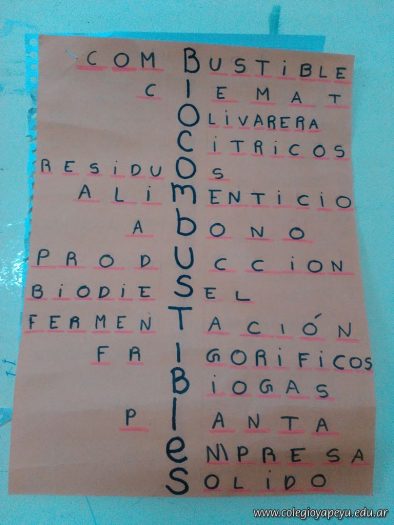 COMBUSTIBLE
CIEMAT
OLIVARERA
CITRICOS
RESIDUOS
ALIMENTICIO
ABONO
PRODUCCION
BIODIESEL
FERMENTACIÓN
FRIGORIFICOS
BIOGAS
PlANTA
eMPRESA
SOLIDO
www.colegioyapeyu.edu.ar